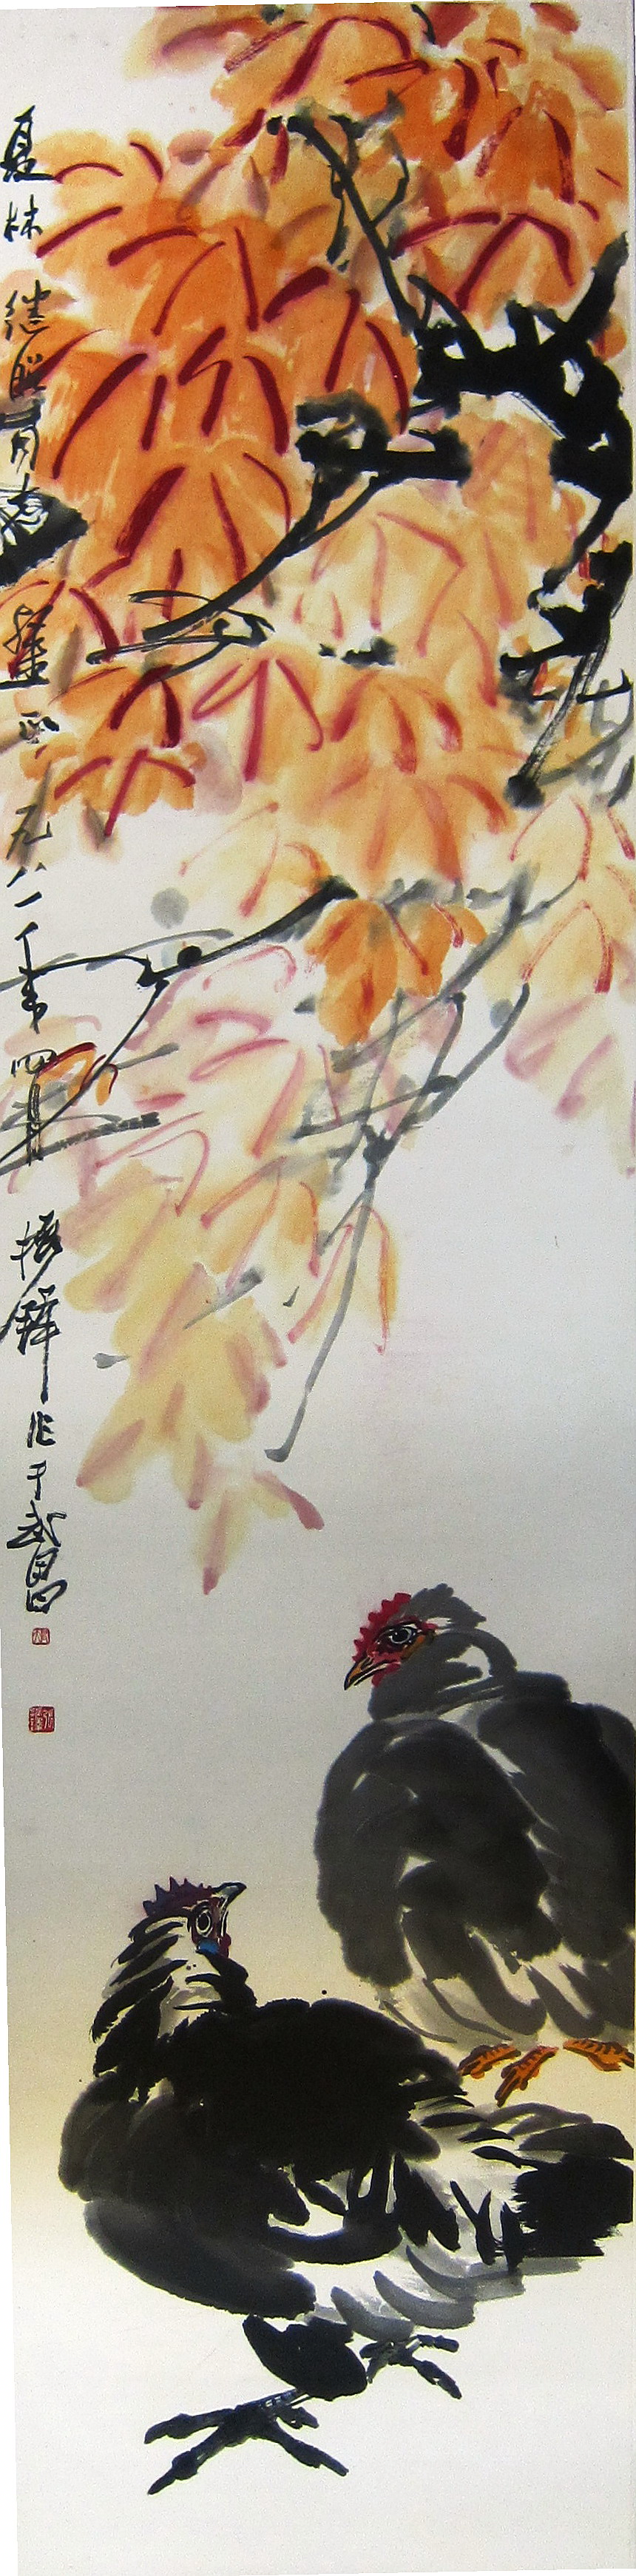 夏林 继聪同志 雅正 一九八一年四月 振铎作于武昌